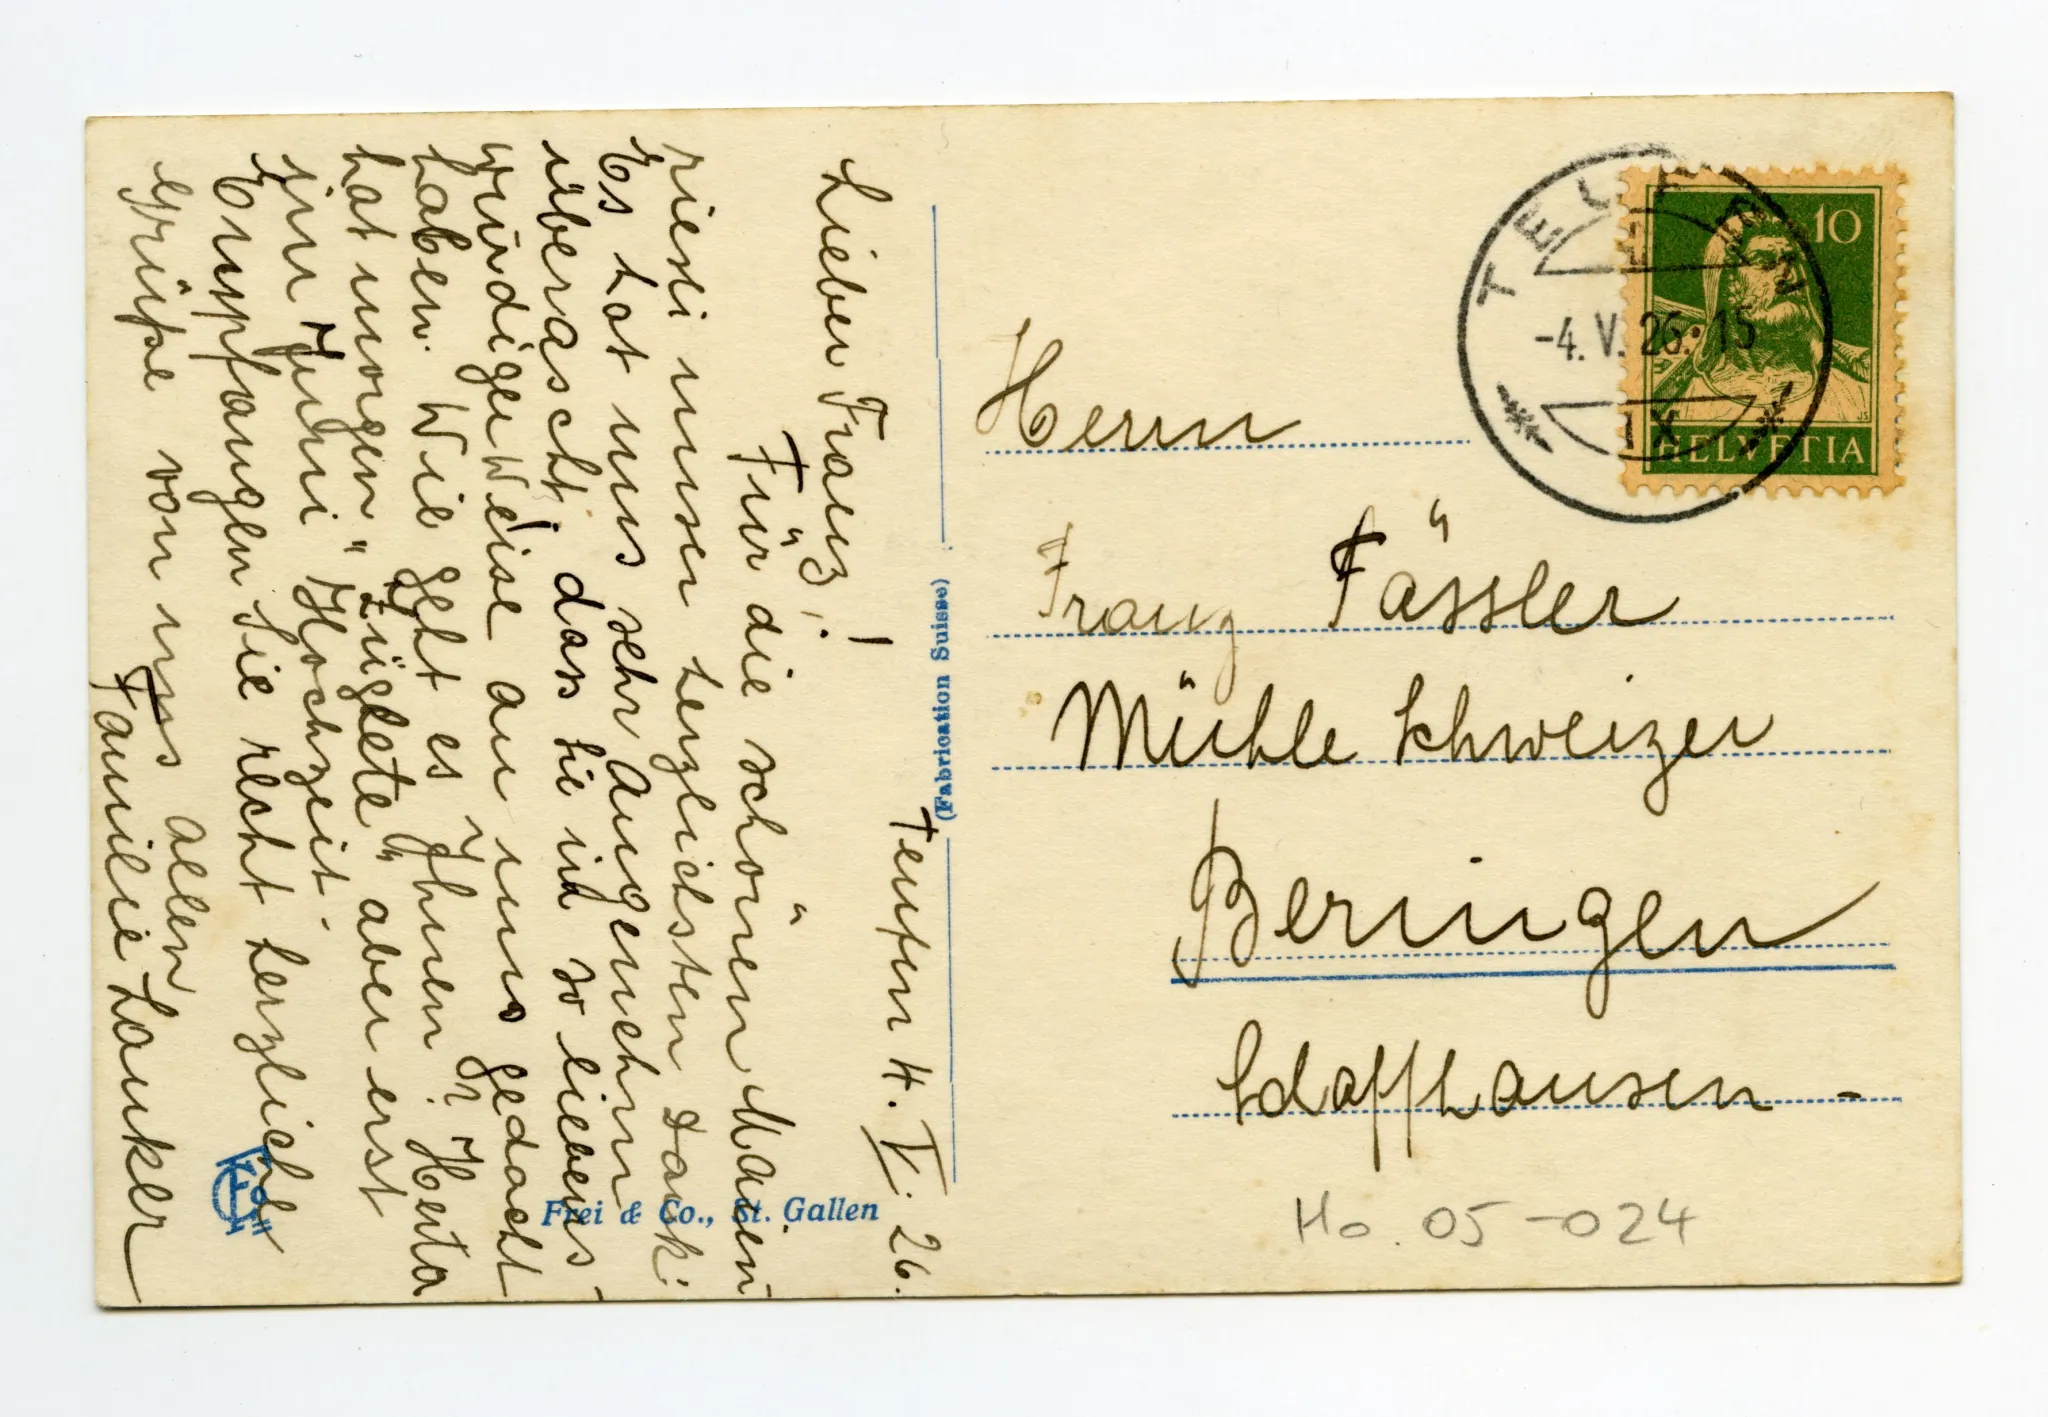 Teufen 4. V. 26.
Lieber Franz!
Für die schönen Maien
riesli unsen herzlichsten Dank.
Es hat uns sehr angenehm
überascht, dass Sie in so liebens-
würdiger Weise an uns gedacht
haben. Wie geht es Ihnen? Herta
hat morgen "Züglete", aber erst
im Juni Hochzeit.
Empfangen Sie recht herzliche
Grüsse von uns allen
Familie Lankler
(Fabrication Suisse)
Frei & Co., St. Gallen
TEUFEN
-4. V. 26. 15
IX
10
HELVETIA
Herrn
Franz Fässler
Mühle Schweizer
Beringen
Schaffhausen -
Ho. 05-024